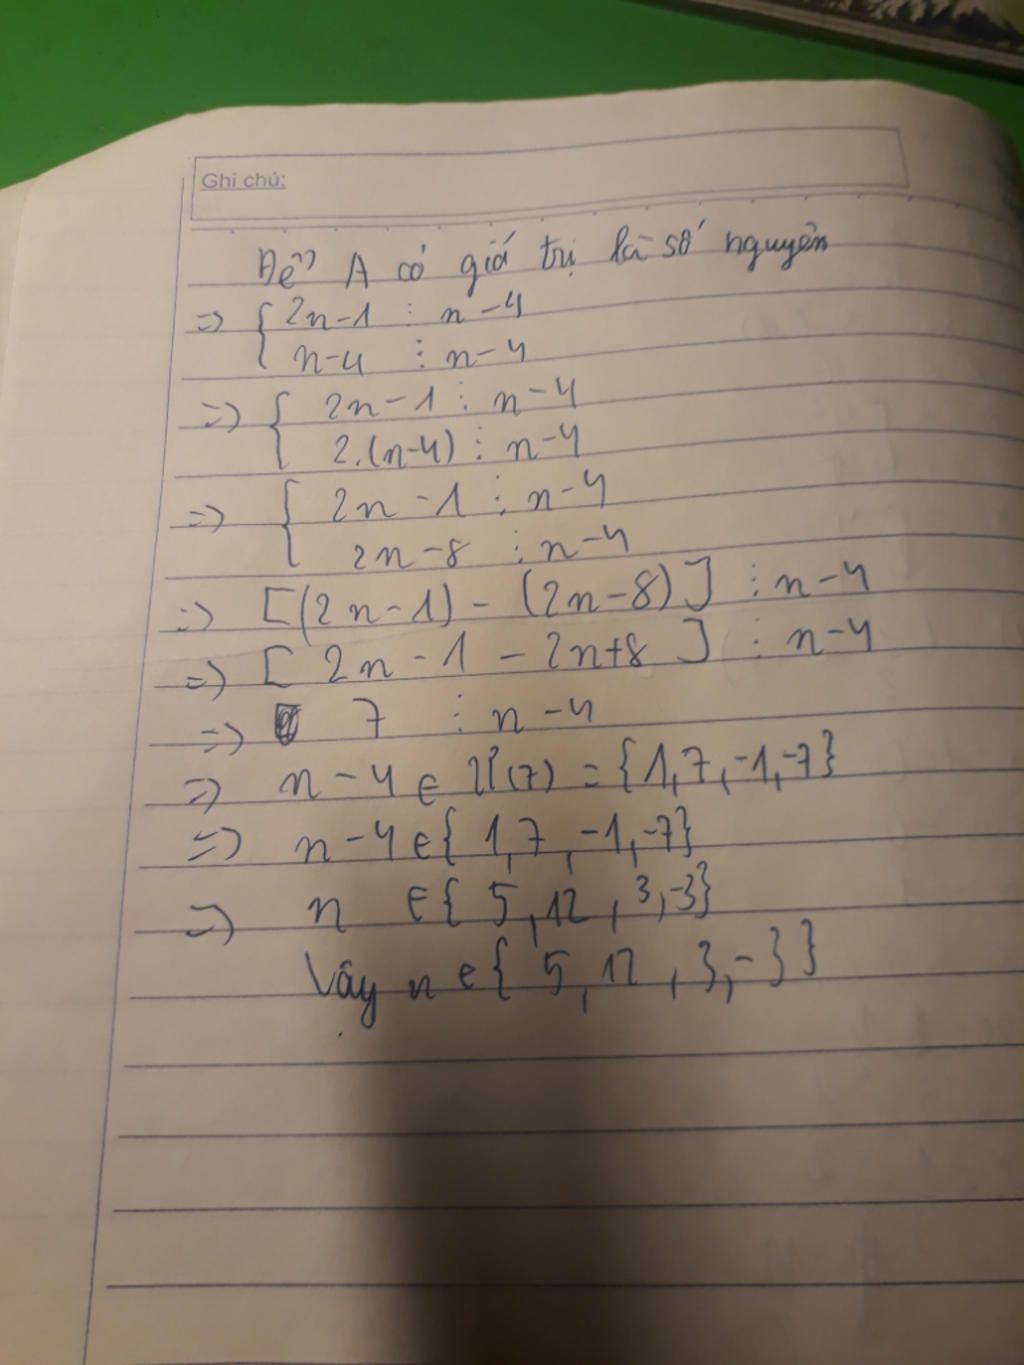 Ghi chú:
Để A có giá trị là số nguyên
=> { 2n-1 ⋮ n-4
n-4 ⋮ n-4
=> { 2n-1 ⋮ n-4
2.(n-4) ⋮ n-4
=> { 2n-1 ⋮ n-4
2n-8 ⋮ n-4
=> [(2n-1) - (2n-8)] ⋮ n-4
=> [2n-1-2n+8] ⋮ n-4
=> 7 ⋮ n-4
=> n-4 ∈ Ư(7) = {1,7,-1,-7}
=> n-4 ∈ {1,7,-1,-7}
=> n ∈ {5,12,3,-3}
Vậy n ∈ {5,12,3,-3}